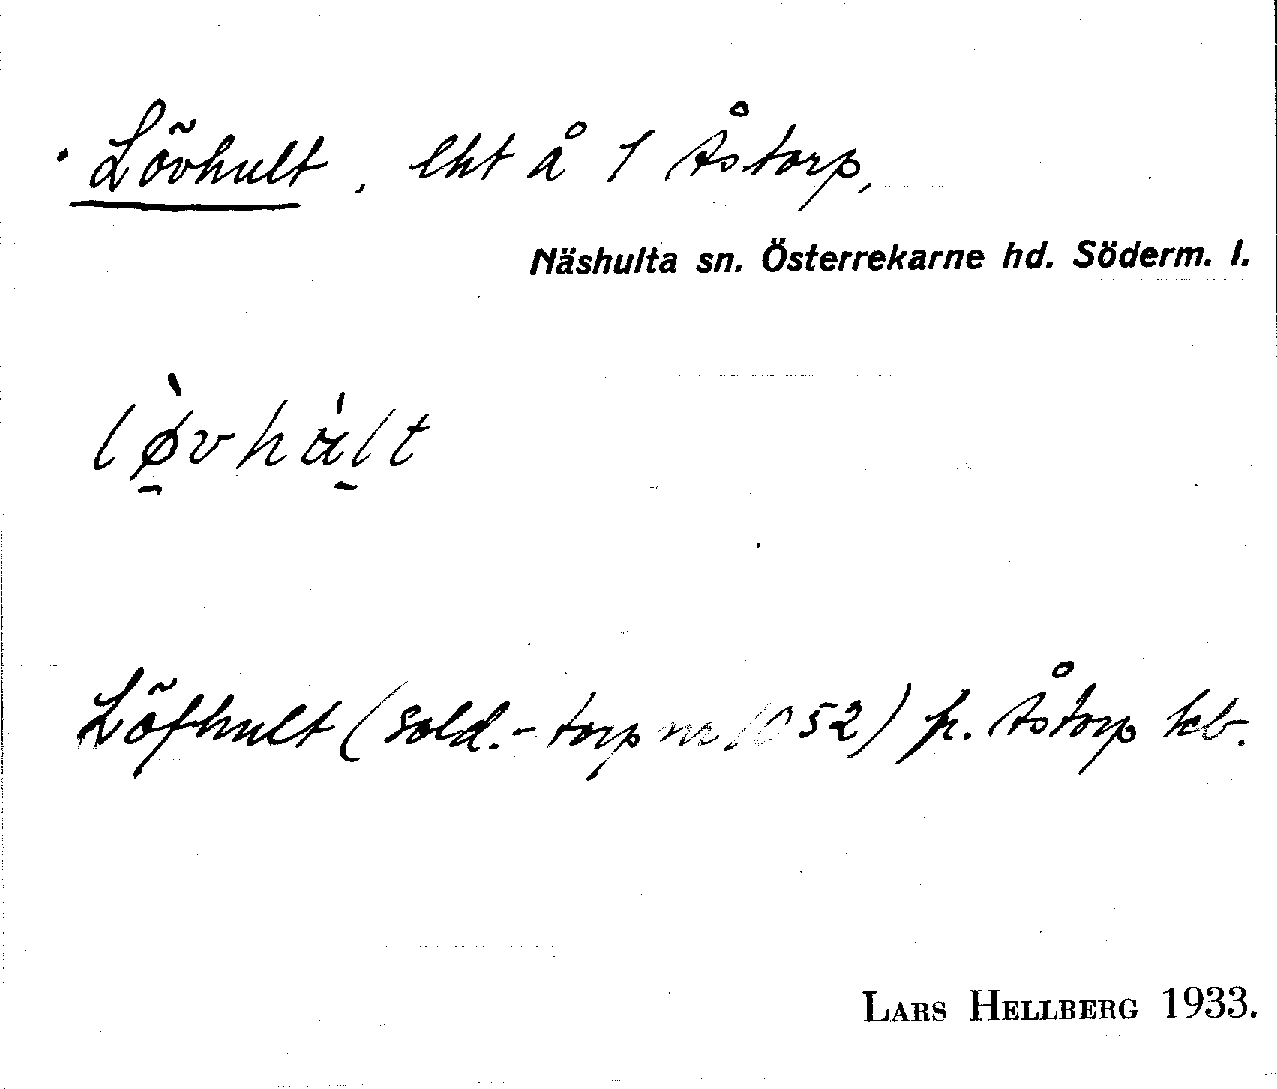 Lövhult, lht å 1 Åstorp,
Näshulta sn. Österrekarne hd. Söderm. l.
lø̀vhál̠t
Löfhult (Sold.-torp nr 1052) fr. Åstorp kb.
LARS HELLBERG 1933.